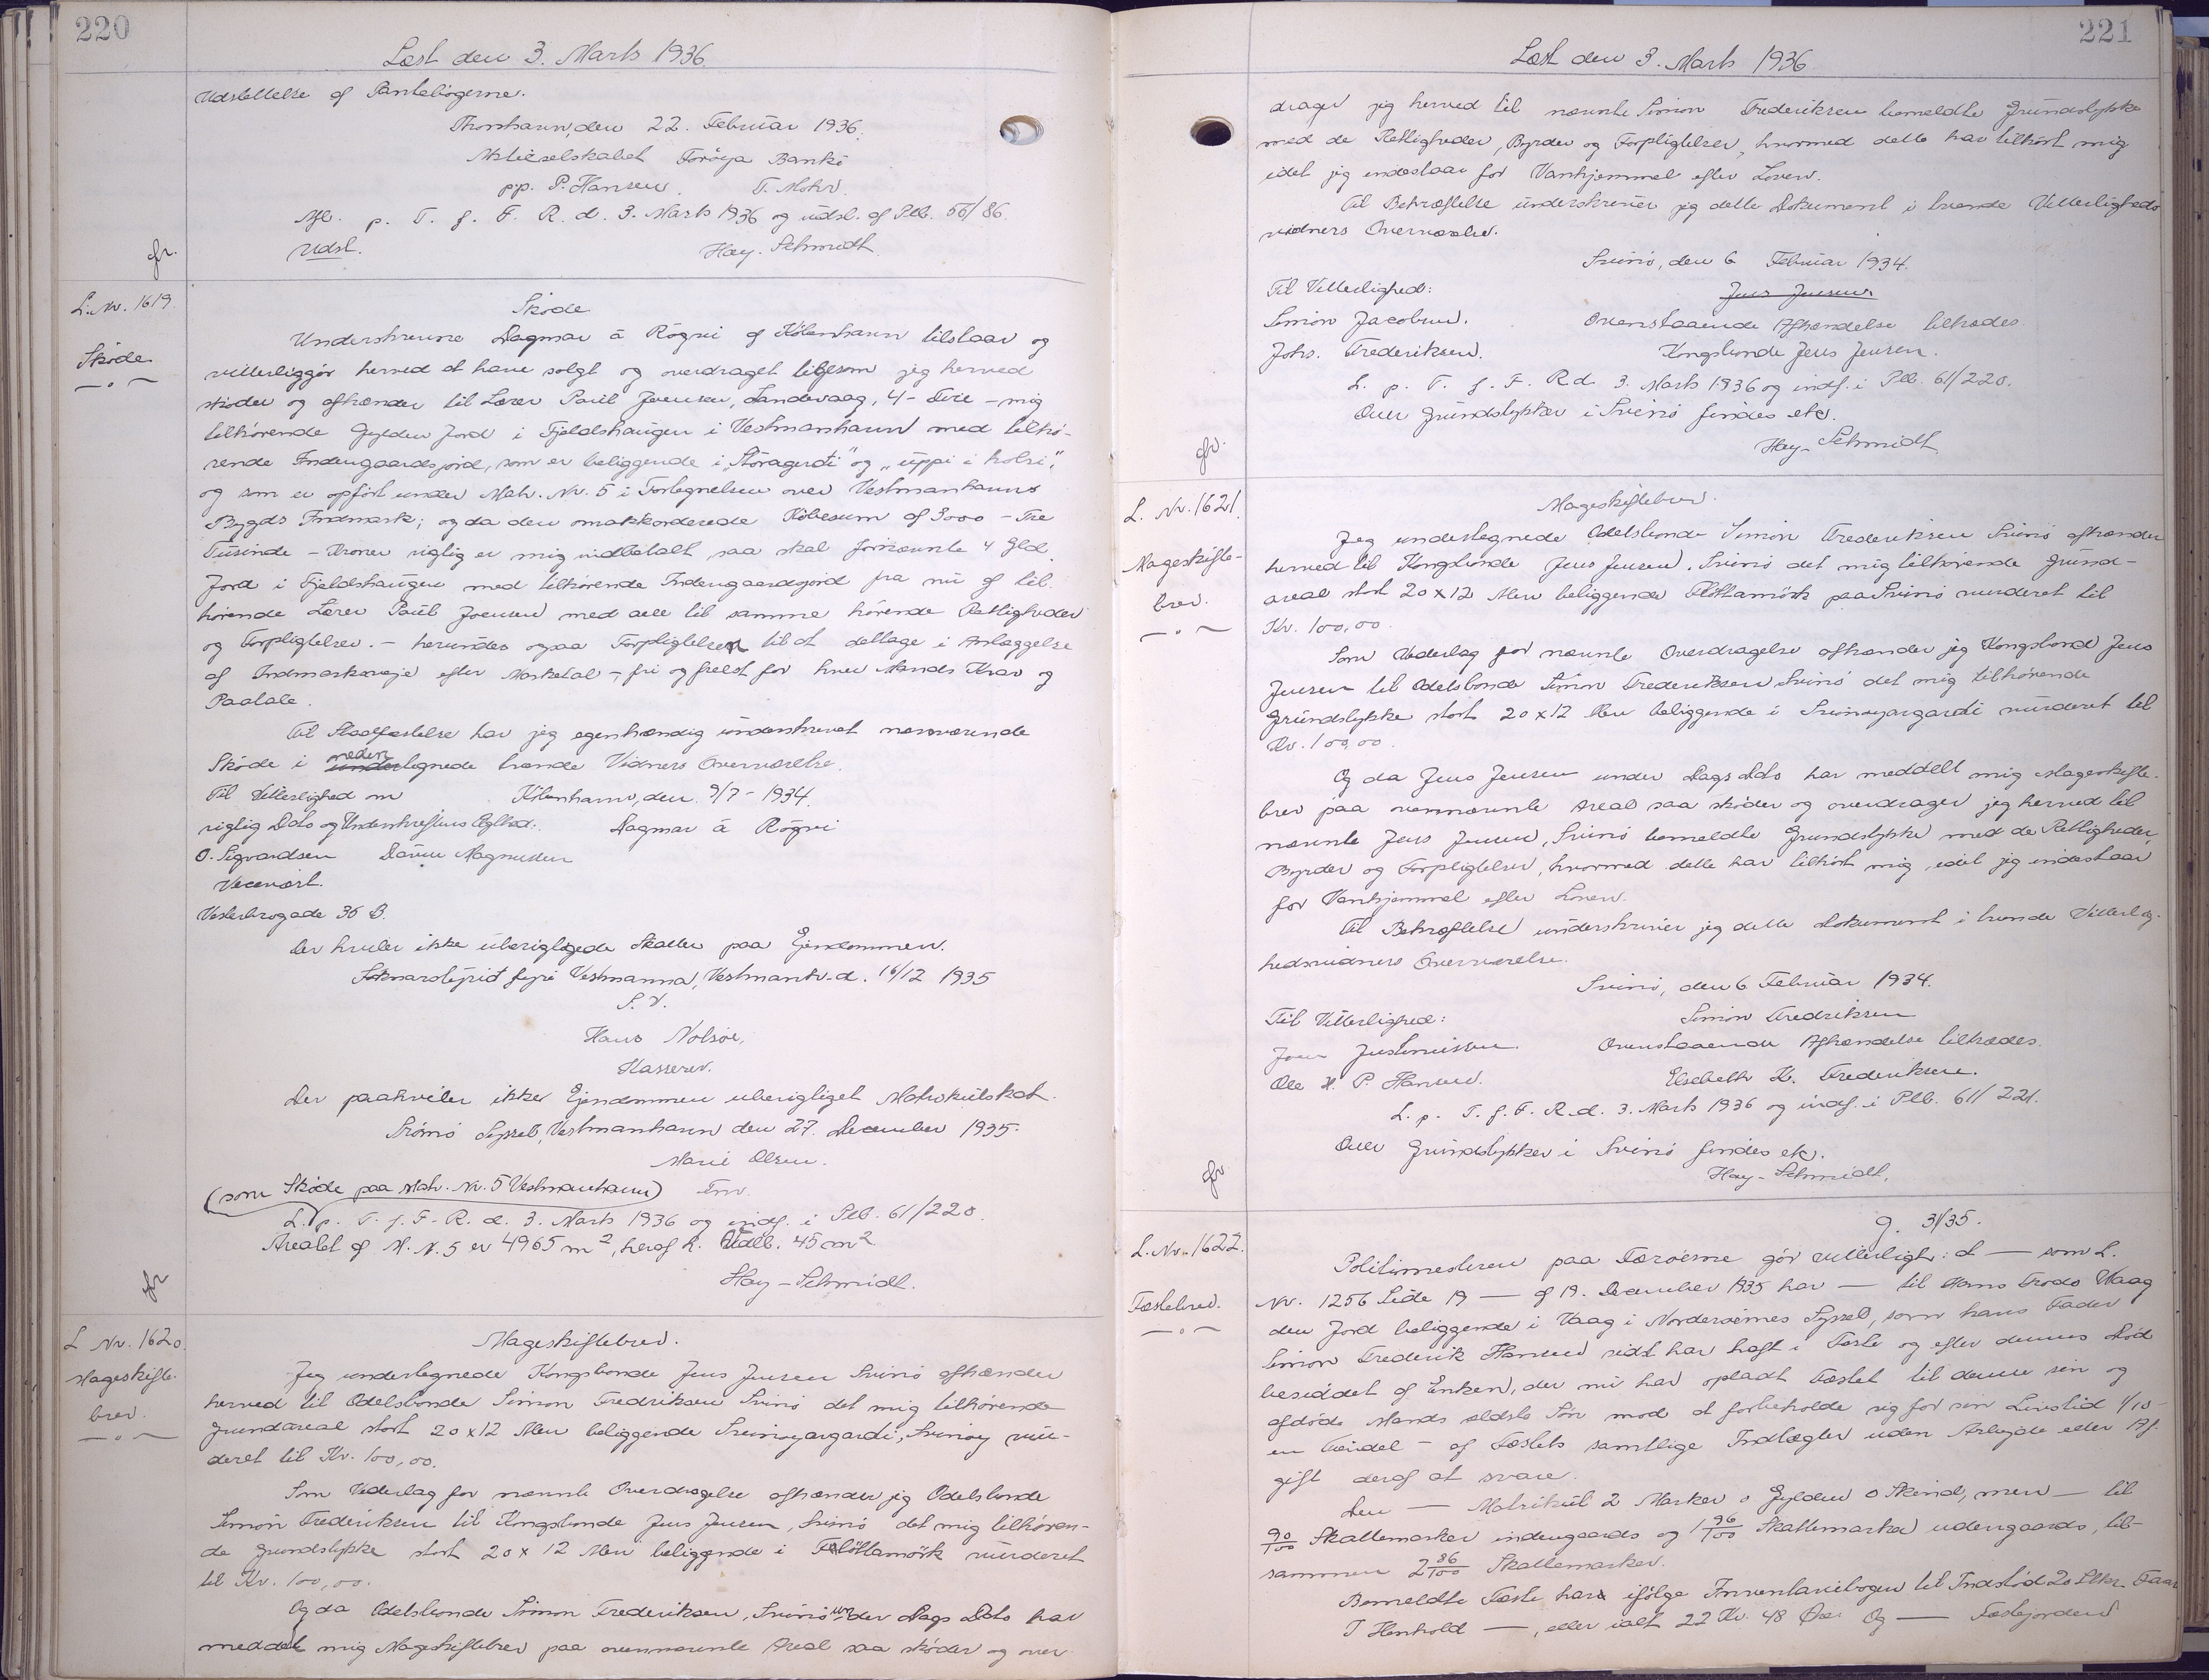 220
Læst den 3. Marts 1936.
Udslettelse af Pantebøgerne.
Thorshavn, den 22. Februar 1936.
Aktieselskabet Føroya Banki
pp. P. Hansen. T. Mohr.
Afl. p. T. f. F. R. d. 3. Marts 1936 og udsl. af Ptb. 56/86.
Udsl. Hay-Schmidt
L. Nr. 1619
Skøde
Skøde
Underskrevne Dagmar á Røgvi af København tilstaar og
vitterliggør herved at have solgt og overdraget ligesom jeg herved
skøder og afhænder til Lærer Poul Joensen, Sandevaag, 4 - Fire - mig
tilhørende Gylden Jord i Fjeldshaugen i Vestmanhavn med tilhø-
rende Indengaardsjord, som er beliggende i „Stóragerði" og „uppi i holri",
og som er opført under Matr. Nr. 5 i Fortegnelsen over Vestmanhavns
Bygds Indmark; og da den omakkorderede Købesum af 3000 - Tre
Tusinde - Kroner rigtig er mig indbetalt, saa skal fornævnte 4 Gld.
Jord i Fjeldshaugen med tilhørende Indengaardsjord fra nu af til-
hørende Lærer Poul Joensen med alle til samme hørende Rettigheder
og Forpligtelser. - herunder ogsaa Forpligtelsen til at deltage i Anlæggelse
af Indmarksveje efter Marketal - fri og frelst for hver Mands Krav og
Paatale.
Til Stadfæstelse har jeg egenhændig underskrevet nærværende
Skøde i under neden tegnede tvende Vidners Overværelse.
Til Vitterlighed om København, den 9/7 - 1934.
rigtig Dato og Underskriftens Ægthed: Dagmar á Røgvi
O. Sigvardsen Magnussen
Vicevært.
Vesterbrogade 36 B.
Der hviler ikke uberigtigede Skatter paa Ejendommen.
Sóknarstýrið fyri Vestmanna, Vestmanhv. d. 16/12 1935
S. V.
Hans Nolsøe,
Kasserer.
Der paahviler ikke Ejendommen uberigtiget Matrikulskat.
Strømø Syssel, Vestmanhavn den 27. December 1935.
Marie Olsen.
(som Skøde paa Matr. Nr. 5 Vestmanhavn) Fmv.
L. p. T. f. F. R. d. 3. Marts 1936 og indf. i Ptb. 61/220.
Arealet af M. N. 5 er 4965 m², heraf 45 m²
Hay-Schmidt.
L Nr. 1620.
Mageskifte-
brev.
Mageskiftebrev.
Jeg undertegnede Kongsbonde Jens Jensen Svinø afhænder
herved til Odelsbonde Simon Fredriksen Svinø det mig tilhørende
Grundareal stort 20 x 12 Alen beliggende Svinoyargardi, Svinoy vur-
deret til Kr. 100,00.
Som Vederlag for nævnte Overdragelse afhænder jeg Odelsbonde
Simon Frederiksen til Kongsbonde Jens Jensen, Svinø det mig tilhøren-
de Grundstykke stort 20 x 12 Alen beliggende i Fløttamørk vurderet
til Kr. 100,00.
Og da Odelsbonde Simon Frederiksen, Svinø under Dags Dato har
meddelt mig Mageskiftebrev paa ovennævnte Areal saa skøder og over-
221
Læst den 3. Marts 1936
drager jeg herved til nævnte Simon Frederiksen bemeldte Grundstykke
med de Rettigheder, Byrder og Forpligtelser, hvormed dette har tilhørt mig
idet jeg indestaar for Vanhjemmel efter Loven.
Til Bekræftelse underskriver jeg dette Dokument i tvende Vitterligheds-
vidners Overværelse.
Svinø, den 6 Februar 1934.
Til Vitterlighed: Jens Jensen
Simon Jacobsen. Ovenstaaende Afhændelse tiltrædes.
Johs. Frederiksen. Kongsbonde Jens Jensen.
L. p. T. f. F. R d. 3. Marts 1936 og indf. i Ptb. 61/220.
Over Grundstykker i Svinø findes etc.
Hay-Schmidt
L. Nr. 1621.
Mageskifte-
brev.
Mageskiftebrev.
Jeg undertegnede Odelsbonde Simon Frederiksen Svinø afhænder
herved til Kongsbonde Jens Jensen, Svinø det mig tilhørende Grund-
areal stort 20 x 12 Alen beliggende Fløttamørk paa Svinø vurderet til
Kr. 100,00.
Som Vederlag for nævnte Overdragelse afhænder jeg Kongsbond Jens
Jensen til Odelsbonde Simon Frederiksen Svinø det mig tilhørende
Grundstykke stort 20 x 12 Alen beliggende i Svinoyargardi vurderet til
Kr. 100,00.
Og da Jens Jensen under Dags Dato har meddelt mig Mageskifte-
brev paa ovennævnte Areal saa skøder og overdrager jeg herved til
nævnte Jens Jensen, Svinø bemeldte Grundstykke med de Rettigheder,
Byrder og Forpligtelser, hvormed dette har tilhørt mig, idet jeg indestaar
for Vanhjemmel efter Loven.
Til Bekræftelse underskriver jeg dette Dokument i tvende Vitterlig-
hedsvidners Overværelse.
Svinø, den 6 Februar 1934.
Til Vitterlighed: Simon Fredriksen
Joen Justinussen. Ovenstaaende Afhændelse tiltrædes.
Ole H. P. Hansen. Elsebeth K. Frederiksen.
L. p. T. f. F. R. d. 3. Marts 1936 og indf. i Ptb. 61/221.
Over Grundstykker i Svinø findes etc.
Hay-Schmidt.
L. Nr. 1622.
Fæstebrev.
9. 31/35.
Politimesteren paa Færøerne gør vitterligt: at — som L.
Nr. 1256 Side 19 — af 19. December 1935 har — til Hans Trods Waag
den Jord beliggende i Vaag i Norderøernes Syssel, som hans Fader
Simon Frederik Hansen sidst har haft i Fæste og efter dennes Død
besiddet af Enken, der nu har opladt Fæstet til denne sin og
afdøde Mands ældste Søn mod at forbeholde sig for sin Livstid 1/10 -
en tiendel - af Fæstets samtlige Indtægter uden Arbejde eller Af-
gift deraf at svare.
Den — Matrikul 2 Marker 0 Gylden 0 Skind, men — til
90/100 Skattemarker indengaards og 1 96/100 Skattemarker udengaards, til-
sammen 2 86/100 Skattemarker.
Bemeldte Fæste har ifølge Inventariebogen til Indstød 20 Stkr. Faar
I Henhold —, eller ialt 22 Kr. 48 Øre Og — Fæstejorden